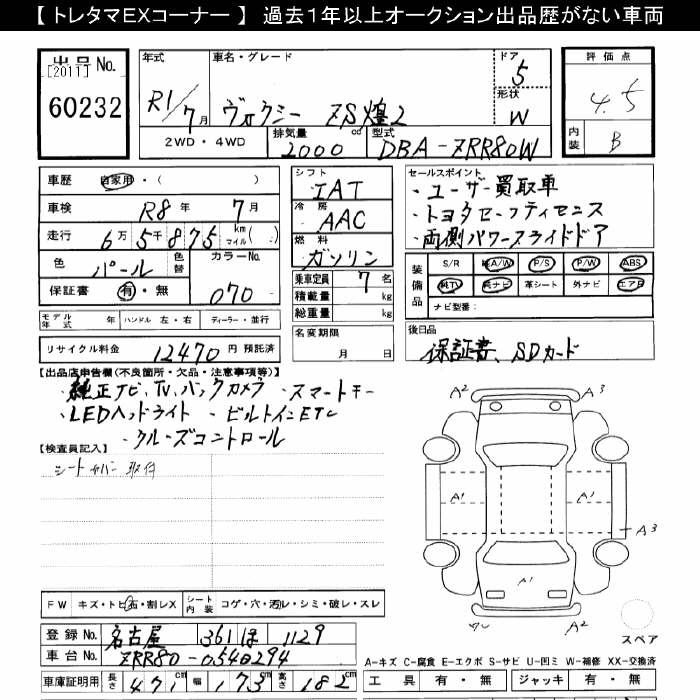 【 トレタマEXコーナー 】 過去1年以上オークション出品歴がない車両
出品 No. [2011] 60232
年式 R1/7月
車名・グレード ヴォクシー ZS煌2
ドア 5
形状 W
評価点 4.5
内装 B
2WD・4WD 排気量 2000 cc 型式 DBA-ZRR80W
車歴 自家用・( )
車検 R8年 7月
走行 6万5千875 km マイル( )
色 パール 色替 カラーNo. 070
保証書 有・無
モデル年式 年 ハンドル 左・右 ディーラー・並行
リサイクル料金 12470 円 預託済
シフト IAT
冷房 AAC
燃料 ガソリン
乗車定員 7 名
積載量 kg
総重量 kg
名変期限 月 日
セールスポイント
・ユーザー買取車
・トヨタセーフティセンス
・両側パワースライドドア
装備品 S/R 純A/W P/S P/W ABS
純TV 純ナビ 革シート 外ナビ エアB
ナビ型番:
後日品
保証書、SDカード
【出品店申告欄(不良箇所・欠品・注意事項等)】
・純正ナビ、TV、バックカメラ ・スマートキー
・LEDヘッドライト ・ビルトインETC
・クルーズコントロール
【検査員記入】
シートカバー取付
A2 A3
A1 A1
A3
A1
A2
スペア
FW キズ・トビ石・割レX シート内装 コゲ・穴・汚レ・シミ・破レ・スレ
登録 No. 名古屋 361 ほ 1129
車台 No. ZRR80-0540294
車庫証明用 長さ 471 cm 幅 173 cm 高さ 182 cm
A-キズ C-腐食 E-エクボ S-サビ U-凹ミ W-補修 XX-交換済
工具 有・無 ジャッキ 有・無